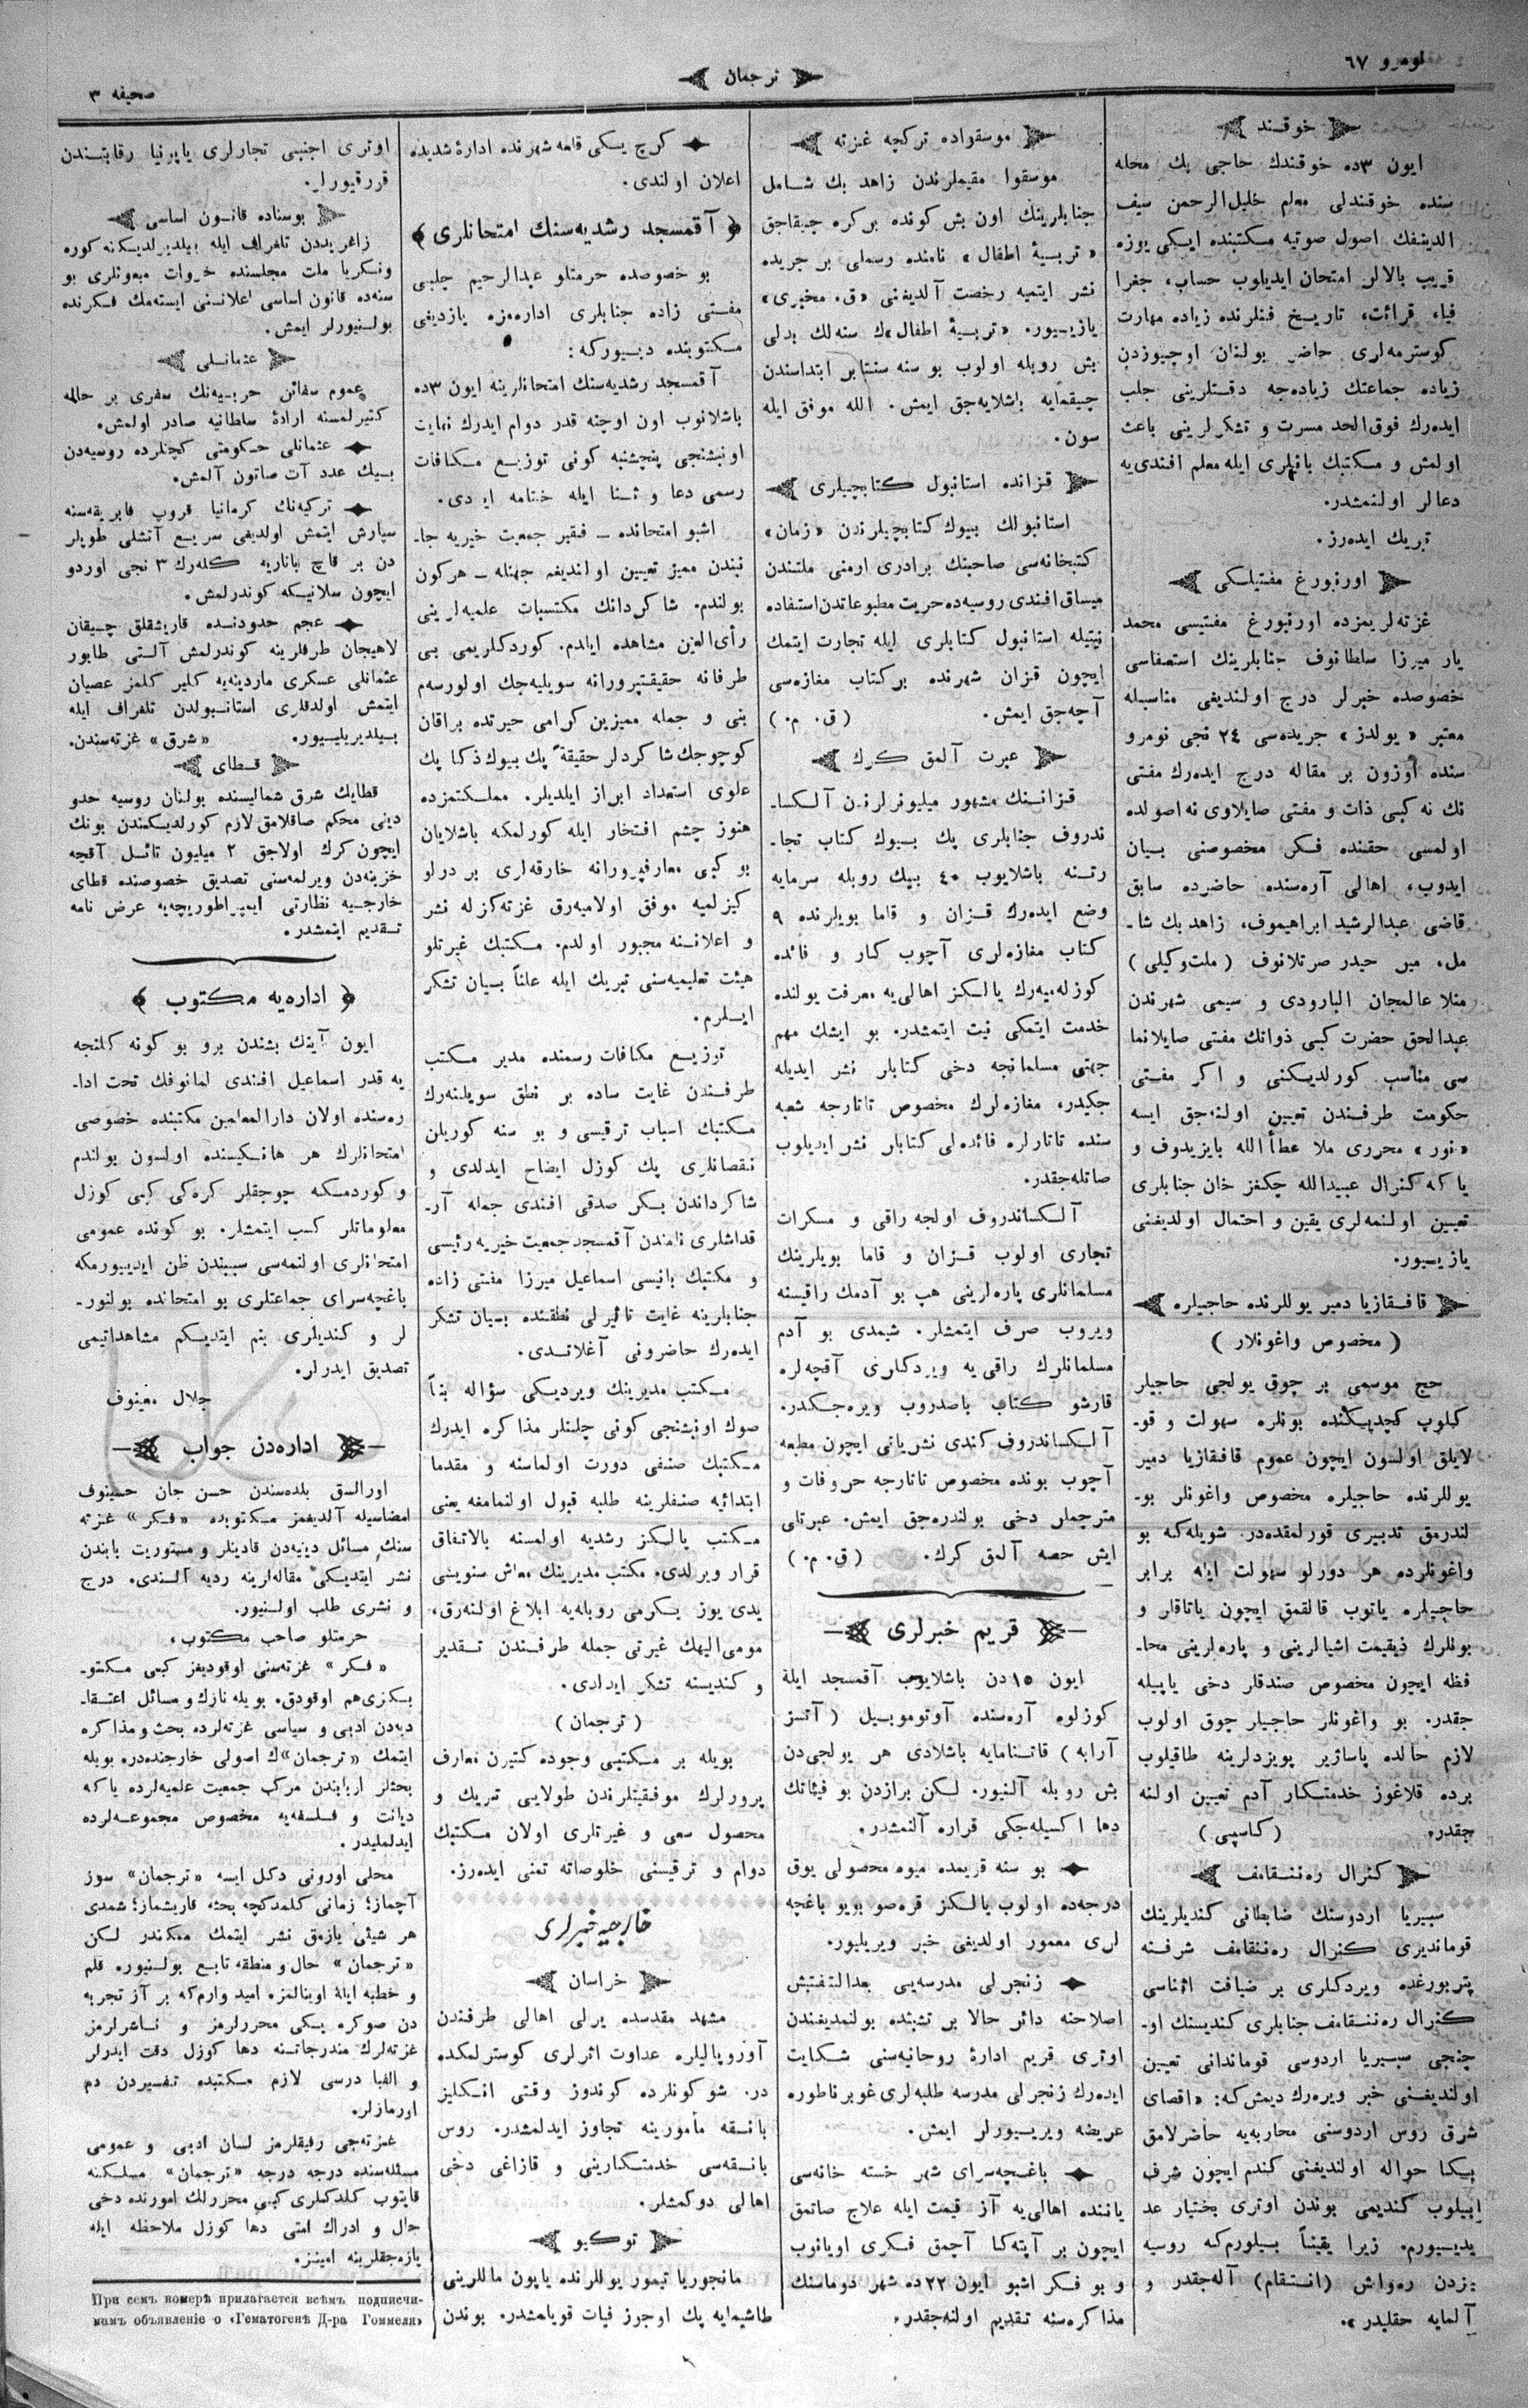 نومرو ٦٧
ترجمان
صحیفه ٣
خوقند
ایون ٣ده خوقندك حاجی بك محله
سنده خوقندلی معلم خلیل‌الرحمن سیف
الدینفك اصول صوتیه مكتبنده ایكی یوزه
قریب بالالر امتحان ایدیلوب حساب، جغرا
فیا، قرائت، تاریخ فنلرنده زیاده مهارت
كوسترمه‌لری حاضر بولنان اوچیوزدن
زیاده جماعتك زیاده‌جه دقتلرینی جلب
ایده‌رك فوق‌الحد مسرت و تشكرلرینی باعث
اولمش و مكتبك بانیلری ایله معلم افندی‌یه
دعالر اولنمشدر.
تبریك ایده‌رز.
اورنبورغ مفتیلكی
غزته‌لریمزده اورنبورغ مفتیسی محمد
یار میرزا سلطانوف جنابلرینك استعفاسی
خصوصده خبرلر درج اولندیغی مناسبله
معتبر «یولدز» جریده‌سی ٢٤ نجی نومرو
سنده اوزون بر مقاله درج ایده‌رك مفتی
نك نه كبی ذات و مفتی صایلاوی نه اصولده
اولمسی حقنده فكر مخصوصنی بیان
ایدوب، اهالی آره‌سنده حاضرده سابق
قاضی عبدالرشید ابراهیموف، زاهد بك شا-
مل، میر حیدر صرتلانوف (ملت وكیلی)
منلا عالمجان البارودی و سیمی شهرندن
عبدالحق حضرت كبی ذواتك مفتی صایلانما
سی مناسب كورلدیكنی و اكر مفتی
حكومت طرفندن تعیین اولنه‌جق ایسه
«نور» محرری ملا عطأالله بایزیدوف و
یا كه كنرال عبیدالله چنكز خان جنابلری
تعیین اولنمه‌لری یقین و احتمال اولدیغنی
یازیـیور.
قافـقازیا دمیر یوللرنده حاجیلره
(مخصوص واغونلار)
حج موسمی بر چوق یولجی حاجیلر
كیلوپ كچدیكنده بونلره سهولت و قو-
لایلق اولسون ایچون عموم قافقازیا دمیر
یوللرنده حاجیلره مخصوص واغونلر بو-
لندرمق تدبیری قورلمقده‌در. شویله‌كه بو
واغونلرده هر دورلو سهولت ایله برابر
حاجیلره یاتوب قالقمق ایچون یاتاقلر و
بونلرك ذیقیمت اشیالرینی و پاره‌لرینی محا-
فظه ایچون مخصوص صندقلر دخی یاپیله
جقدر. بو واغونلر حاجیلر چوق اولوب
لازم حالده پاساژیر پویزدلرینه طاقیلوب
برده قلاغوز خدمتكار آدم تعیین اولنه
جقدر. (كاسپی)
كنرال ره‌ننـقامف
سیبیریا اردوسنك ضابطانی كندیلرینك
قومانديری كنرال ره‌ننقامف شرفنه
پتربورغده ویردكلری بر ضیافت اثناسی
كنرال ره‌ننـقامف جنابلری كندیسنك او-
چنجی سیبیریا اردوسی قوماندانی تعیین
اولندیغنی خبر ویره‌رك دیمش كه: «اقصای
شرق روس اردوسنی محاربه‌یه حاضرلامق
بیكا حواله اولندیغنی كندم ایچون شرف
ایبیلوب كندیمی بوندن اوتری بختیار عد
یدیـیورم. زیرا یقیناً بیلورم‌كه روسیه
بزدن ره‌وانش (انتقام) آله‌جقدر و
آلمایه حقلیدر».
موسقواده تركچه غزته
موسقوا مقیملرندن زاهد بك شامل
جنابلرینك اون بش كونده بر كره چیقاجق
«تربیهٔ اطفال» نامنده رسملی بر جریده
نشر ایتمیه رخصت آلدیغنی «ق. مخبری»
یازیـیور. «تربیهٔ اطفال»ك سنه‌لك بدلی
بش روبله اولوب بو سنه سنتابر ابتداسندن
چیقمایه باشلایه‌جق ایمش. الله موفق ایله
سون.
قزانده استانبول كتابچیلری
استانبولك بیوك كتابچیلرندن «زمان»
كتبخانه‌سی صاحبنك برادری ارمنی ملتندن
میساق افندی روسیه‌ده حریت مطبوعاتدن استفاده
نیتیله استانبول كتابلری ایله تجارت ایتمك
ایچون قزان شهرنده بر كتاب مغازه‌سی
آچه‌جق ایمش. (ق. م.)
عبرت آلمق كرك
قزانـنك مشهور میلیونرلرندن آلكسا-
ندروف جنابلری پك بیوك كتاب تجا-
رتـنه باشلایوب ٤٠ بیك روبله سرمایه
وضع ایده‌رك قزان و قاما بویلرنده ٩
كتاب مغازه‌لری آچوب كار و فائده
كوزله‌میه‌رك یالكز اهالی‌یه معرفت یولنده
خدمت ایتمكی نیت ایتمشدر. بو ایشك مهم
جهتی مسلمانجه دخی كتابلر نشر ایدیله
جكیدر، مغازه‌لرك مخصوص تاتارجه شعبه
سنده تاتارلره فائده‌لی كتابلر نشر ایدیلوب
صاتله‌جقدر.
آلـكساندروف اولجه راقی و مسكرات
تجاری اولوب قزان و قاما بویلرینك
مسلمانلری پاره‌لرینی هپ بو آدمك راقیسنه
ویروب صرف ایتمشلر. شیمدی بو آدم
مسلمانلرك راقی‌یه ویردكلری آقچه‌لره
قارشو كتاب باصدروب ویره‌جكدر.
آلـكساندروف كندی نشریاتی ایچون مطبعه
آچوب بونده مخصوص تاتارجه حروفات و
مترجملر دخی بولندره‌جق ایمش. عبرتلی
ایش حصه آلمق كرك. (ق. م.)
قریم خبرلری
ایون ١٥دن باشلایوب آقمسجد ایله
كوزلوه آره‌سنده آوتوموبیل (آتسز
آرابه) قاتـنامایه باشلادی هر یولجی‌دن
بش روبله آلنیور. لكن برازدن بو فیئاتك
دها اكسیله‌جكی قراره آلنمشدر.
بو سنه قریمده میوه محصولی یوق
درجه‌ده اولوب یالكز قره‌صو بویو باغچه
لری معمور اولدیغی خبر ویریلیور.
زنجرلی مدرسه‌یی بعدالتفتیش
اصلاحنه دائر حالا بر تشبثده بولنمدیغندن
اوتری قریم ادارهٔ روحانیه‌سنی شكایت
ایده‌رك زنجرلی مدرسه طلبه‌لری غوبرناطوره
عریضه ویریـیورلر ایمش.
باغـچه‌سرای شهر خسته خانه‌سی
یاننده اهالی‌یه آز قیمت ایله علاج صاتمق
ایچون بر آپته‌كا آچمق فكری اویانوب
و بو فكر اشبو ایون ٢٢ده شهر دوماسنك
مذاكره‌سنه تقدیم اولنه‌جقدر.
كرچ یـكی قلعه شهرنده ادارهٔ شدیده
اعلان اولندی.
﴿ آقمسجد رشدیه‌سنك امتحانلری ﴾
بو خصوصده حرمتلو عبدالرحیم چلبی
مفتی زاده جنابلری اداره‌مزه یازدیغی
مكتوبنده دیـیوركه:
آقمسجد رشدیه‌سنك امتحانلرینه ایون ٣ده
باشلانوب اون اوچنه قدر دوام ایدرك نهایت
اونبشنجی پنچشنبه كونی توزیع مكافات
رسمی دعا و ثـنا ایله ختامه ایردی.
اشبو امتحانده ــ فقیر جمعیت خیریه جا-
نبندن ممیز تعیین اولندیغم جهتله ــ هركون
بولندم. شاكردانك مكتسبات علمیه‌لرینی
رأی‌العین مشاهده ایلدم. كوردكلریمی بی
طرفانه حقیقتپرورانه سویلیه‌جك اولورسه‌م
بنی و جمله ممیزین كرامی حیرتده براقان
كوچوجك شاكردلر حقیقةً پك بیوك ذكا پك
علوی استعداد ابراز ایلدیلر. مملـكتمزده
هنوز چشم افتخار ایله كورلمكه باشلایان
بو كبی معارفپرورانه خارقه‌لری بر درلو
كیزلمیه موفق اولامیه‌رق غزته‌كزله نشر
و اعلانـنه مجبور اولدم. مكتبك غیرتلو
هیئت تعلیمیه‌سنی تبریك ایله علناً بیان تشكر
ایلرم.
توزیع مكافات رسمنده مدیر مكتب
طرفندن غایت ساده بر نطق سویلنه‌رك
مكتبك اسباب ترقیسی و بو سنه كوریلن
نقصانلری پك كوزل ایضاح ایدلدی و
شاكرداندن بكر صدقی افندی جمله آر-
قداشلری نامندن آقمسجد جمعیت خیریه رئیسی
و مكتبك بانیسی اسماعیل میرزا مفتی زاده
جنابلرینه غایت تاثیرلی نطقنده بیان تشكر
ایده‌رك حاضرونی آغلاتـدی.
مكتب مدیرینك ویردیكی سؤاله بناً
صوك اونبشنجی كونی چلنلر مذاكره ایدرك
مكتبك صنفی دورت اولماسنه و مقدما
ابتدائیه صنفلرینه طلبه قبول اولنمامغه یعنی
مكتب یالكز رشدیه اولمسنه بالاتفاق
قرار ویرلدی. مكتب مدیرینك معاش سنویسی
یدی یوز یكرمی روبله‌یه ابلاغ اولنه‌رق،
مومی‌الیهك غیرتی جمله طرفندن تقدیر
و كندیسنه تشكر ایدلدی.
(ترجمان)
بویله بر مكتبی وجوده كتیرن معارف
پرورلرك موفقیتلرندن طولایی تبریك و
محصول سعی و غیرتلری اولان مكتبك
دوام و ترقیسنی خلوصانه تمنی ایده‌رز.
خارجیه خبرلری
خراسان
مشهد مقدسده یرلی اهالی طرفندن
آوروپالیلره عداوت اثرلری كوسترلمكده
در. شو كونلرده كوندوز وقتی انكلیز
بانـقه مأمورینه تجاوز ایدلمشدر. روس
بانـقه‌سی خدمتكارینی و قازاغی دخی
اهالی دوكمشلر.
توكیو
مانجوریا تیمور یوللرنده یاپون ماللرینی
طاشیمایه پك اوجوز فیات قویلمشدر. بوندن
اوتری اجنبی تجارلری یاپونیا رقابتـندن
قورقیورلر.
بوسناده قانـون اساسی
زاغربدن تلغراف ایله بیلدیرلدیكنه كوره
ونـكریا ملت مجلسنده خروات مبعوثلری بو
سنه‌ده قانون اساسی اعلانـنی ایسته‌مك فكرنده
بولنیورلر ایمش.
عثمانـلی
عموم سفائن حربـیه‌نك سفری بر حاله
كتیرلمسنه ارادهٔ سلطانیه صادر اولمش.
عثمانلی حكومتی كچنلرده روسیه‌دن
بیك عدد آت صاتون آلمش.
تركیه‌نك كرمانیا قروپ فابریقه‌سنه
سپارش ایتمش اولدیغی سریع آتشلی طوپلر
دن بر قاچ باتاریه كله‌رك ٣ نجی اوردو
ایچون سلانیكه كوندرلمش.
عجم حدودنـده قاریشقلق چیقان
لاهیجان طرفلرینه كوندرلمش آلـتی طابور
عثمانلی عسكری ماردینه‌یه كلیر كلمز عصیان
ایتمش اولدقلری استانبولدن تلغراف ایله
بیلدیریلیـور. «شرق» غزته‌سندن.
قـطای
قطایك شرق شمالیسنده بولنان روسیه حدو
دینی محكم صاقلامق لازم كورلدیكندن بونك
ایچون كرك اولاجق ٢ میلیون تائـل آقچه
خزینه‌دن ویرلمه‌سنی تصدیق خصوصنده قطای
خارجـیه نظارتی ایمپراطوریچه‌یه عرض نامه
تقدیم ایتمشدر.
﴿ اداره‌یه مكتوب ﴾
ایون آینك بشندن برو بو كونه كلنجه
یه قدر اسماعیل افندی لمانوفك تحت ادا-
ره‌سنده اولان دارالمعلمین مكتبنده خصوصی
امتحانلرك هر هانـكیسنده اولسون بولندم
و كوردمـكه چوجقلر كره‌كی كبی كوزل
معلوماتلر كسب ایتمشلر. بو كونده عمومی
امتحانلری اولنمه‌سی سببندن ظن ایدییورمكه
باغچه‌سرای جماعتلری بو امتحانده بولنور-
لر و كندیلری بنم ایتدیكم مشاهداتیمی
تصدیق ایدرلر.
جلال معینوف
اداره‌دن جواب
اورالسق بلده‌سندن حسن جان حسینوف
امضاسیله آلدیغمز مكتوبده «فكر» غزته
سنك مسائل دینیه‌دن قادینلر و مستوریت بابندن
نشر ایتدیكی مقاله‌لرینه ردیه آلـندی. درج
و نشری طلب اولنیور.
حرمتلو صاحب مكتوب،
«فكر» غزته‌سنی اوقودیغز كبی مكتو-
بكزی‌هم اوقودق. بویله نازك و مسائل اعتقا-
دیه‌دن ادبی و سیاسی غزته‌لرده بحث و مذاكره
ایتمك «ترجمان»ك اصولی خارجنده‌در. بویله
بحثلر اربابندن مركب جمعیت علمیه‌لرده یا كه
دیانت و فلسفه‌یه مخصوص مجموعه‌لرده
ایدلملیدر.
محلی اورونی دكل ایسه «ترجمان» سوز
آچماز؛ زمانی كلمدكچه بحثه قاریشماز؛ شمدی
هر شیئی یازمق نشر ایتمك ممكندر لكن
«ترجمان» حال و منطقه تابع بولنیور. قلم
و خطبه ایله اوینالمز. امید وارم‌كه بر آز تجربه
دن صوكره یـكی محررلرمز و ناشرلرمز
غزته‌لرك مندرجاتـنه دها كوزل دقت ایدرلر
و الفبا درسی لازم مكتبده تفسیردن دم
اورمازلر.
غزته‌جی رفیقلرمز لسان ادبی و عمومی
مسئله‌سنده درجه درجه «ترجمان» مسلكنه
قایتوب كلدكلری كبی محررلك امورنده دخی
حال و ادراك امتی دها كوزل ملاحظه ایله
یازه‌جقلرینه امینز.
При семъ номерѣ прилагается всѣмъ подписчи-
камъ объявленіе о «Гематогенѣ Д-ра Гоммеля»